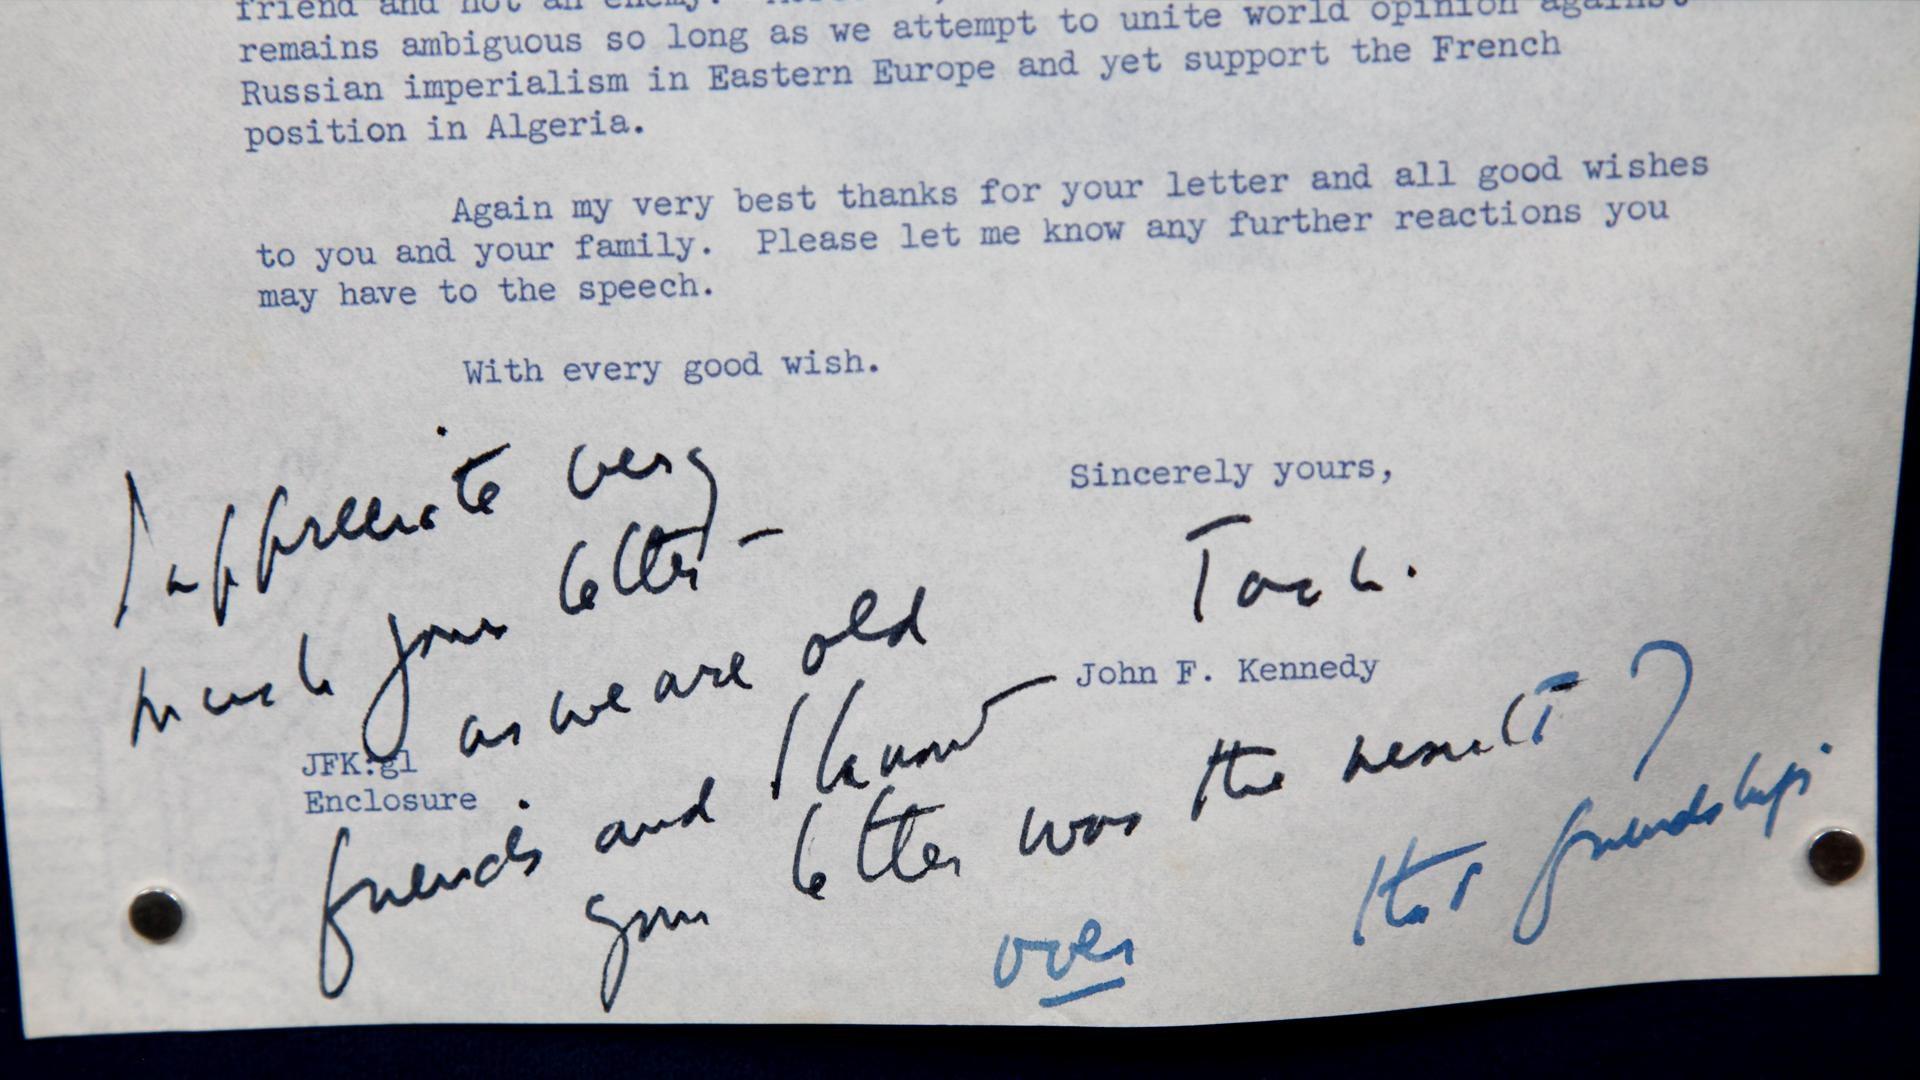 friend and not an enemy.
remains ambiguous so long as we attempt to unite world opinion against
Russian imperialism in Eastern Europe and yet support the French
position in Algeria.
Again my very best thanks for your letter and all good wishes
to you and your family. Please let me know any further reactions you
may have to the speech.
With every good wish.
Sincerely yours,
Jack.
John F. Kennedy
I appreciate very
much your letter –
as we are old
friends and I know
your letter was the result
of
this friendship
over
JFK:gl
Enclosure